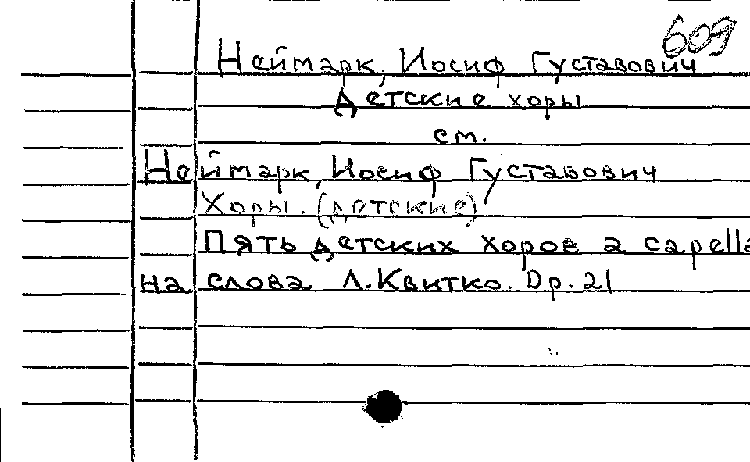 609
Неймарк, Иосиф Густавович
Детские хоры
см.
Неймарк, Иосиф Густавович
Хоры. (детские)
Пять детских хоров a capella
на слова Л. Квитко. Op. 21